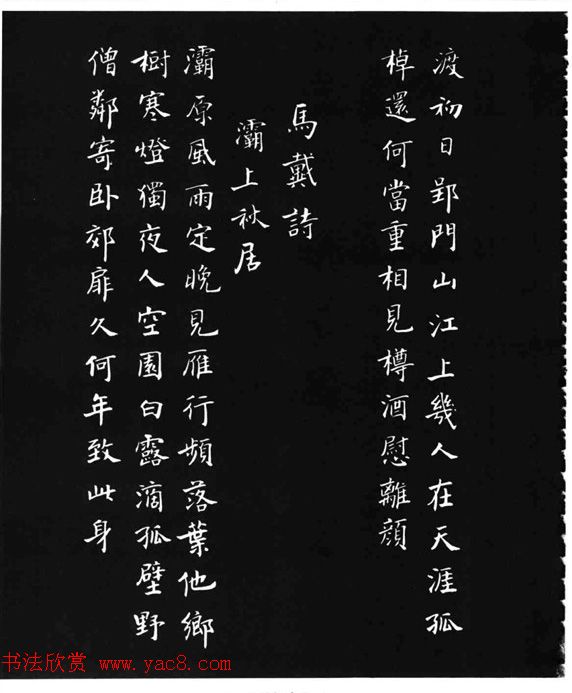 渡初日郢門山江上幾人在天涯孤
棹還何當重相見樽酒慰離顏
馬戴詩
灞上秋居
灞原風雨定晚見雁行頻落葉他鄉
樹寒燈獨夜人空園白露滴孤壁野
僧鄰寄卧郊扉久何年致此身
书法欣赏 www.yac8.com